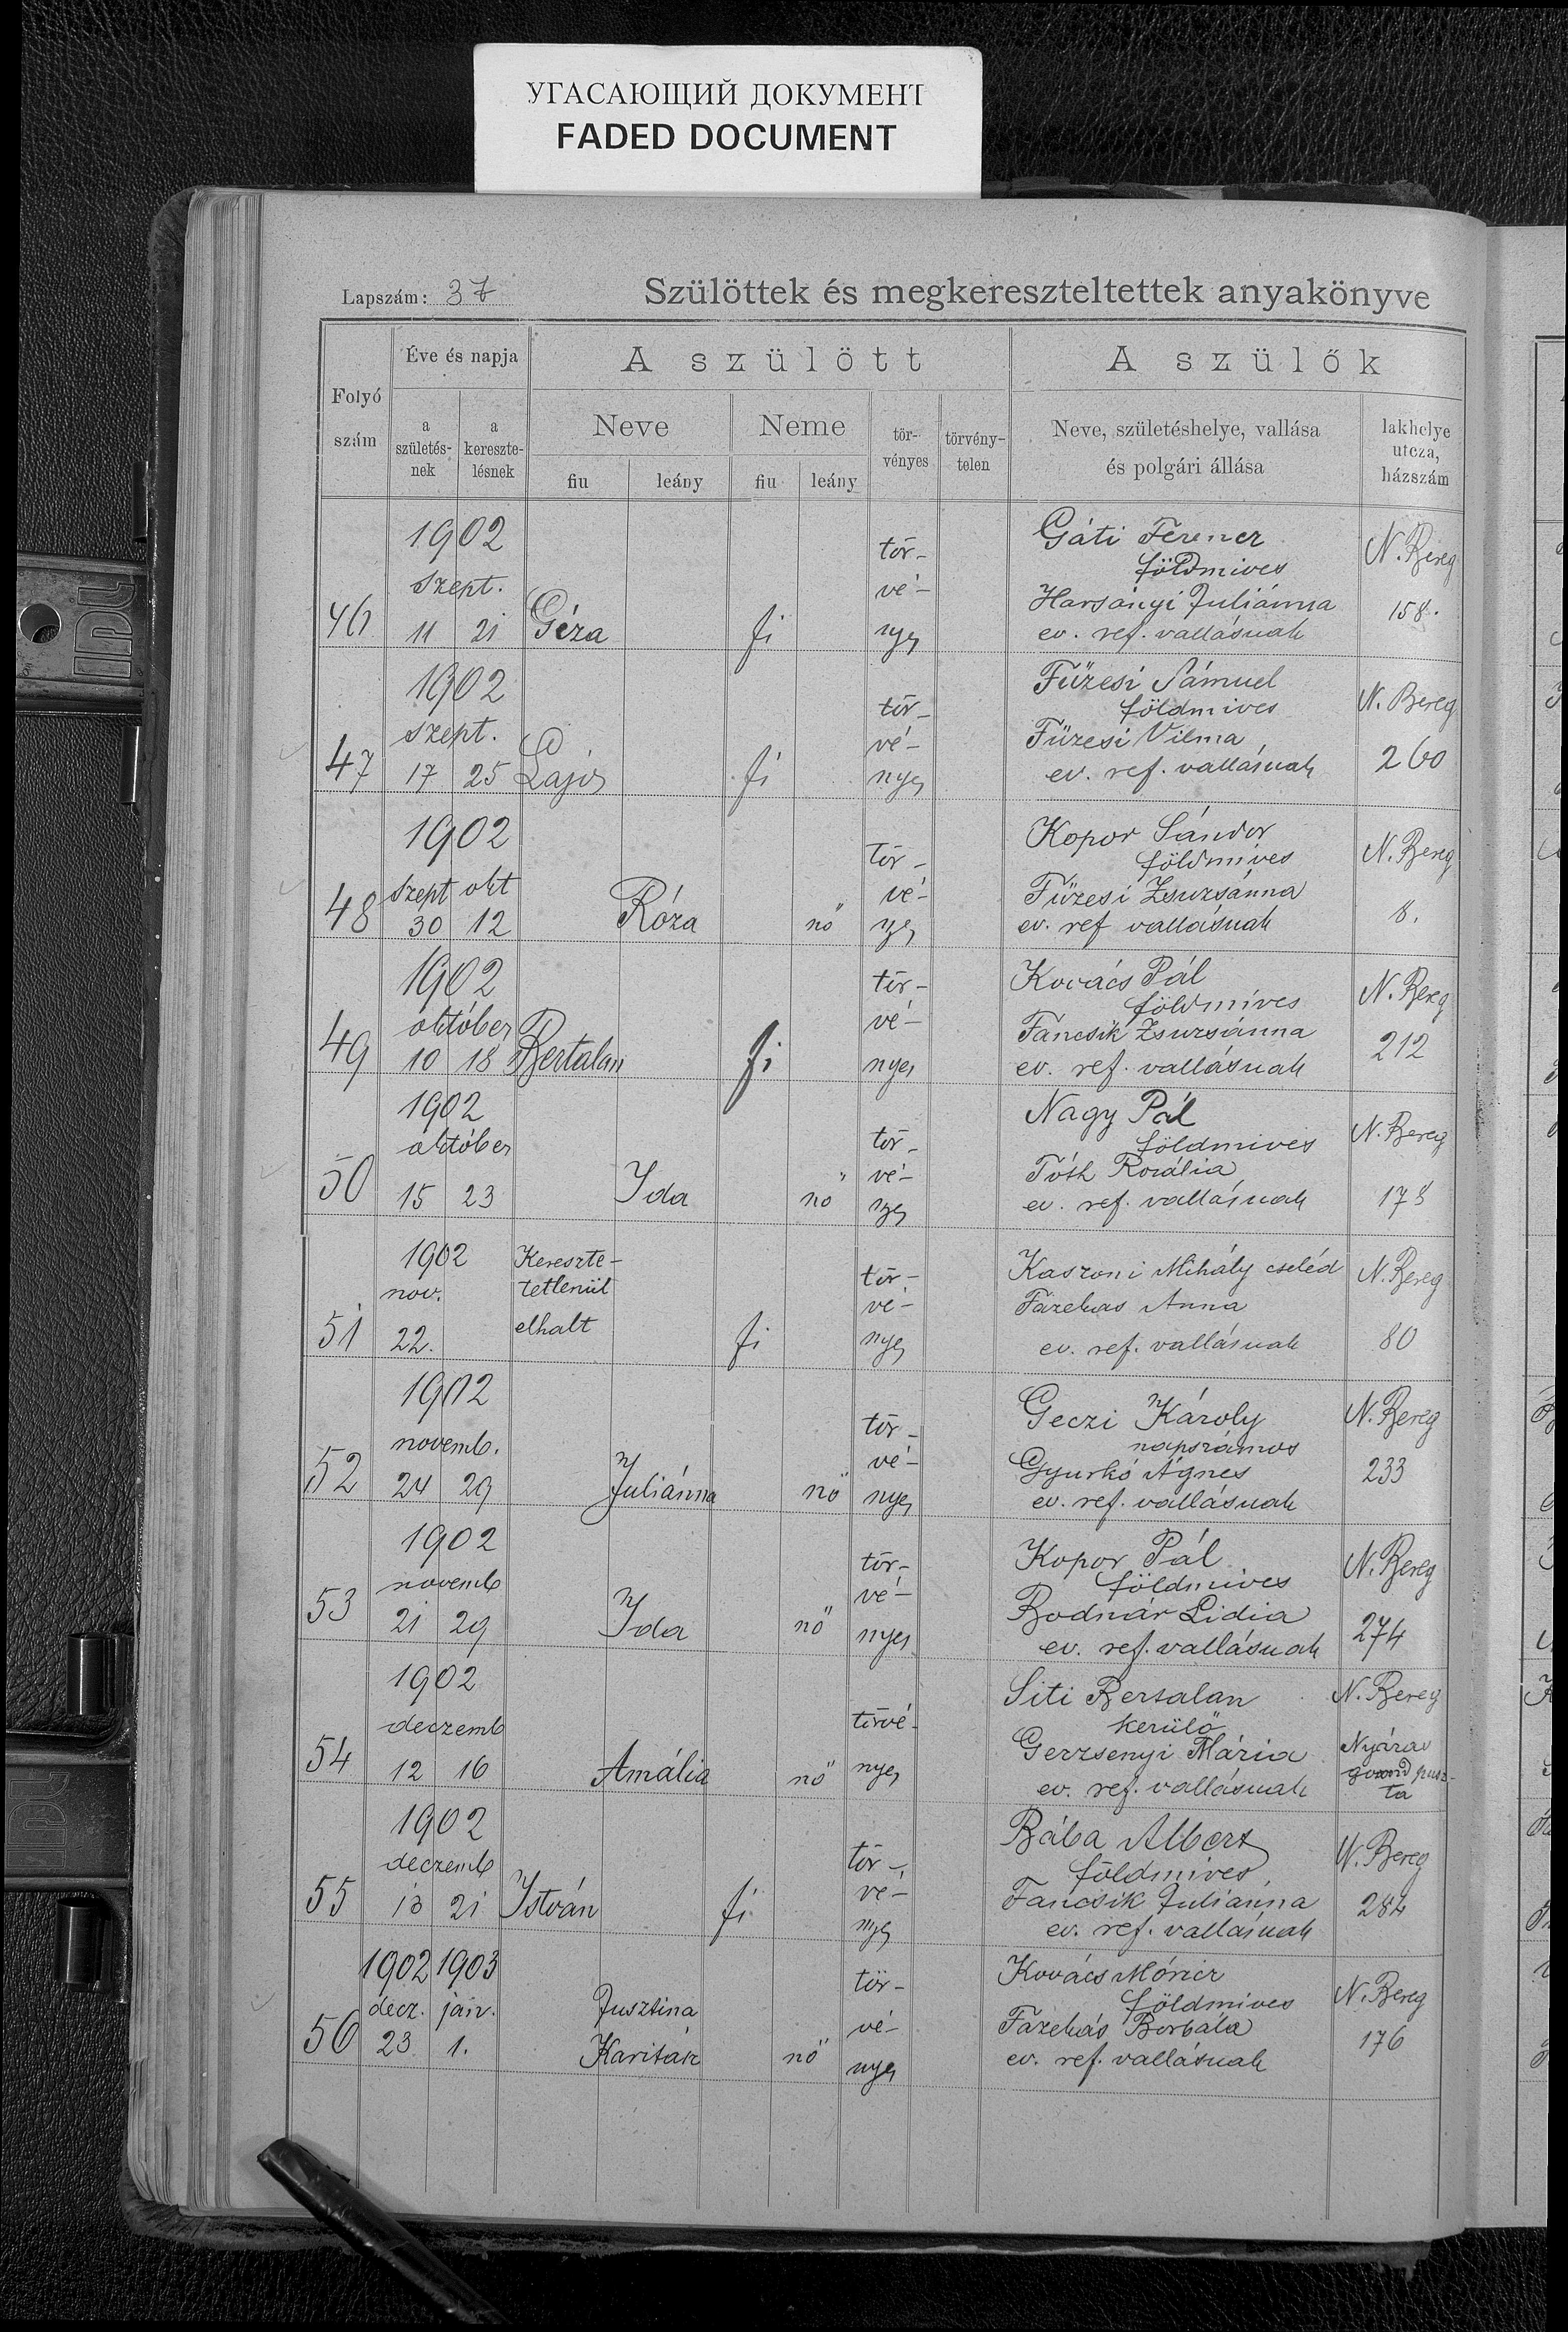 УГАСАЮЩИЙ ДОКУМЕНТ
FADED DOCUMENT
Lapszám: 37
Szülöttek és megkereszteltettek anyakönyve
Folyó szám
Éve és napja
a születés-nek
a keresztelésnek
A szülött
Neve
fiu
leány
Neme
fiu
leány
tör-vényes
törvény-telen
A szülők
Neve, születéshelye, vallása
és polgári állása
lakhelye
utcza,
házszám
46 1902 szept. 11 21 Géza fi tör-vé-nyes
Gáti Ferencz
földmives
Harsányi Juliánna
ev. ref. vallásnak
N. Bereg
158.
47 1902 szept. 17 25 Lajos fi tör-vé-nyes
Füzesi Sámuel
földmives
Füzesi Vilma
ev. ref. vallásnak
N. Bereg
260
48 1902 szept 30 okt 12 Róza nő tör-vé-nyes
Kopor Sándor
földmíves
Füzesi Zsuzsánna
ev. ref vallásnak
N. Bereg
8.
49 1902 október 10 18 Bertalan fi tör-vé-nyes
Kovács Pál
földmíves
Fancsik Zsuzsánna
ev. ref. vallásnak
N. Bereg
212
50 1902 október 15 23 Ida nő tör-vé-nyes
Nagy Pál
földmives
Tóth Rozália
ev. ref. vallásnak
N. Bereg
178
51 1902 nov. 22. Kereszte-
tetlenül
elhalt fi tör-vé-nyes
Kaszoni Mihály cseléd
Fazekas Anna
ev. ref. vallásnak
N. Bereg
80
52 1902 novemb. 24 29 Juliánna nő tör-vé-nyes
Geczi Károly
napszámos
Gyurkó Ágnes
ev. ref. vallásnak
N. Bereg
233
53 1902 novemb 21 29 Ida nő tör-vé-nyes
Kopor Pál
földmives
Bodnár Lidia
ev. ref. vallásnak
N. Bereg
274
54 1902 deczemb 12 16 Amália nő törvé-nyes
Siti Bertalan
kerülő
Gerzsenyi Mária
ev. ref. vallásnak
N. Bereg
Nyáras
pusz-
ta
55 1902 deczemb 13 21 István fi tör-vé-nyes
Bába Albert
földmives
Fancsik Juliánna
ev. ref. vallásnak
N. Bereg
284
56 1902 decz. 23 1903 jan. 1. Jusztina
Karitász nő tör-vé-nyes
Kovács Móricz
földmives
Fazekas Borbála
ev. ref. vallásnak
N. Bereg
176